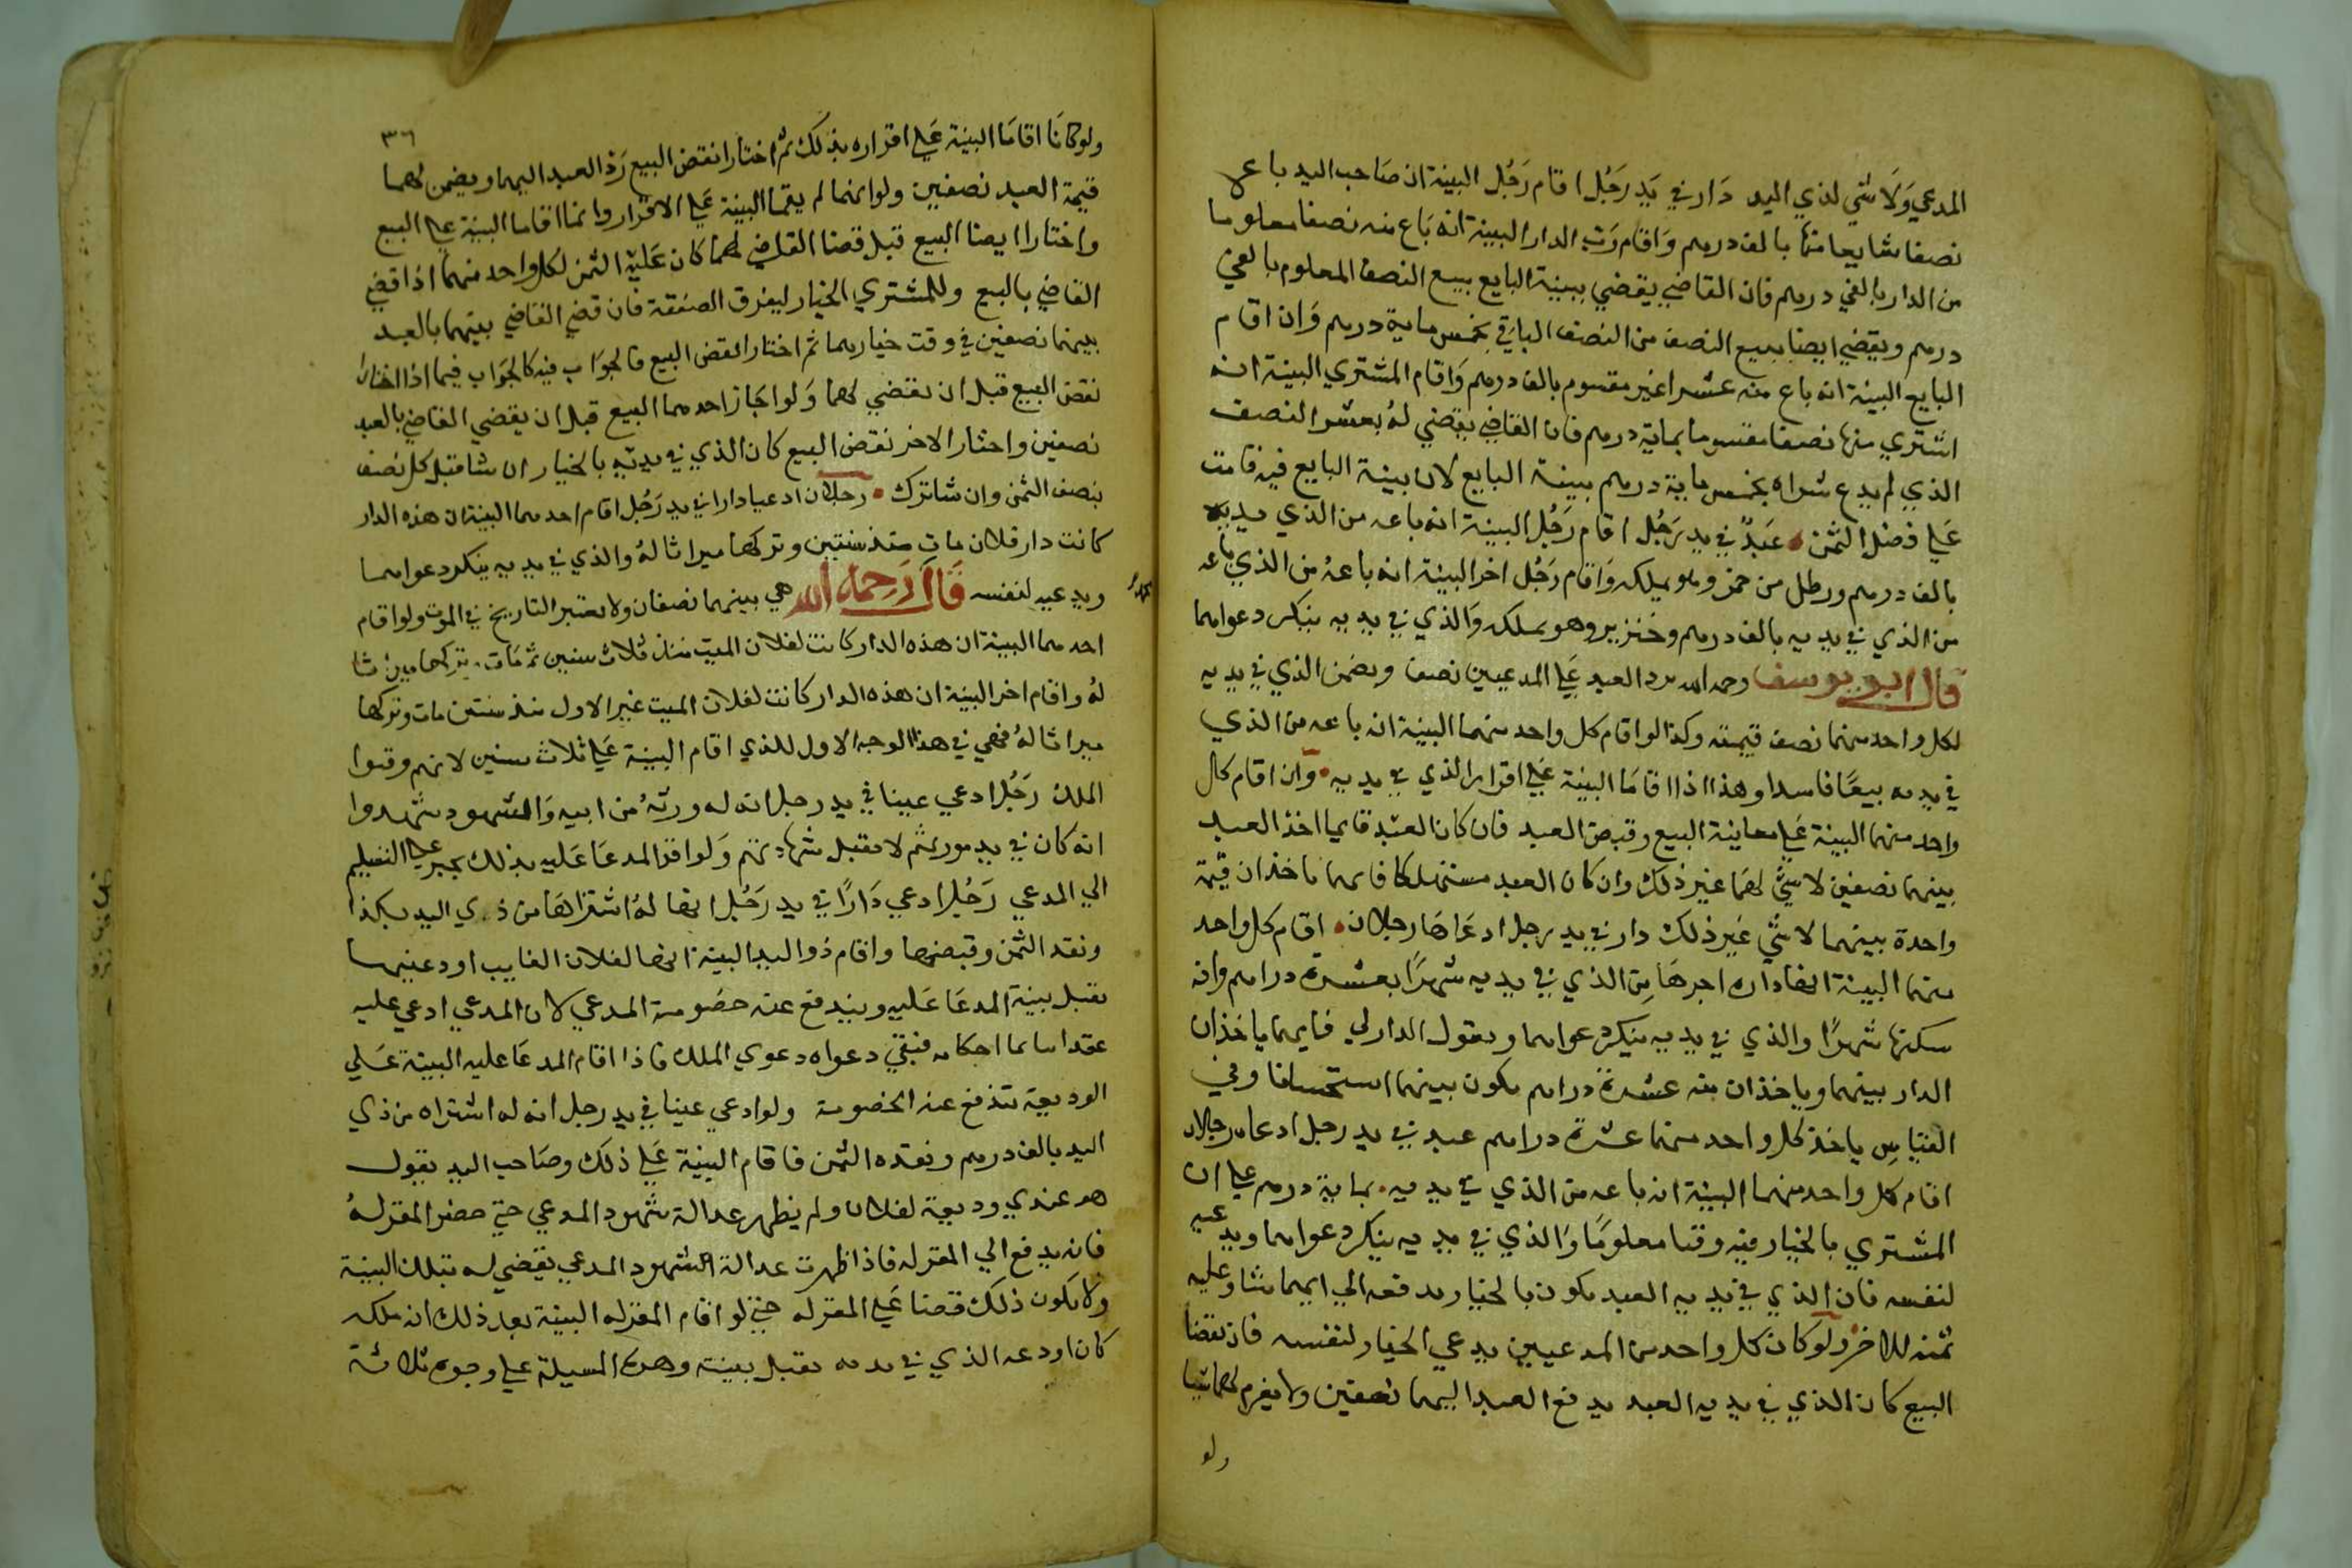 المدعي وَلَا شي لذي اليد دَار في يَدِ رَجُل اقام رَجُل البينة ان صَاحب اليد باعه
نصفا شايعا منها بالف درهم وَاقام رَب الدار البينة انه بَاع منه نصفا معلوما
من الدار بالفي درهم فان القاضي يقضي ببينة البايع ببيع النصف المعلوم بالفي
درهم ويقضي ايضا ببيع النصف من النصف الباقي بخمس ماية درهم وَان اقام
البايع البينة انه باع منه عشرا غير مقسوم بالف درهم وَاقام المشتري البينة انه
اشتري منها نصفا مقسوما بماية درهم فان القاضي يقضي لهُ بعشر النصف
الذي لم يدع شراه بخمس ماية درهم ببينة البايع لان بينة البايع فيه قامت
عَلي فضل الثمن عَبدٌ في يد رَجُل اقام رَجُل البينة انه باعه من الذي في يديه
بالف درهم ورطل من خمر وهو يملكه وَاقام رَجُل اخر البينة انه باعهُ من الذي باعه
من الذي في يديه بالف درهم وخنزير وهو يملكه وَالذي في يديه ينكر دعواهما
قال ابو يوسف رحمه الله يرد العبد عَلي المدعيين نصف ويضمن الذي في يديه
لكل واحد منهما نصف قيمته وكذا لو اقام كل واحد منهما البينة انه باعه من الذي
في يديه بيعًا فاسدا وهذا اذا اقامَا البينة عَلي اقرار الذي في يديه وَان اقام كل
واحد منهما البينة عَلي معاينة البيع وقبض العبد فان كان العَبد قايما اخذ العبد
بينهما نصفين لا شي لهَما غير ذلك وان كان العبد مستهلكا فانهما ياخذان قيمة
واحدة بينهما لا شي غَير ذلك دار في يد رجل ادعَاهَا رجلان اقام كل واحد
منهما البينة انها داره اجرهَا مِن الذي في يديه شهرًا بعشرة دراهم وانه
سكنها شهرًا والذي في يديه ينكر دعواهما ويقول الدار لي فانهما ياخذان
الدار بينهما وياخذان منه عشرة دراهم يكون بينهما استحسانا وفي
القياس ياخذ كل واحد منهما عشرة دراهم عبد في يد رجل ادعاه رجلان
اقام كل واحد منهما البينة انه باعه من الذي في يديه بماية درهم علي ان
المشتري بالخيار فيه وقتا معلومًا وَالذي في يديه ينكر دعواهما ويدعيه
لنفسه فان الذي في يديه العبد يكون بالخيار يدفعه الي ايهما شا وعليه
ثمنه للاخر ولو كان كل واحد من المدعيين يدعي الخيار لنفسه فان نقضا
البيع كان الذي في يديه العبد يدفع العبد اليهما نصفين ولا يغرم لهما شيا
ولو
٣٦
ولو كانَا اقامَا البينة عَلي اقراره بذلك ثم اختارا نقض البيع رَد العبد اليهما ويضمن لهما
قيمة العبد نصفين ولو انهما لم يقيما البينة عَلي الاقرار وانما اقاما البينة علي البيع
واختارا ايضا البيع قبل قضا القاضي لهما كان عَليه الثمن لكل واحد منهما اذا قضي
القاضي بالبيع وللمشتري الخيار ليفرق الصفقة فان قضي القاضي بينهما بالعبد
بينهما نصفين في وقت خيارهما ثم اختار نقض البيع فالجوَاب فيه كالجوَاب فيما اذا اختارَا
نقض البيع قبل ان يقضي لهما وَلو اجَاز احدهما البيع قبل ان يقضي القاضي بالعبد
نصفين واختار الاخر نقض البيع كان الذي في يديه بالخيار ان شا قبل كل نصف
بنصف الثمن وان شا ترك رجلان ادعيا دارا في يد رَجُل اقام احدهما البينة ان هذه الدار
كانت دار فلان مات منذ سنتين وتركها ميراثا لهُ والذي في يديه ينكر دعواهما
ويدعيه لنفسه قَال رَحمه الله هي بينهما نصفان ولا يعتبر التاريخ في الموت ولو اقام
احدهما البينة ان هذه الدار كانت لفلان الميت منذ ثلاث سنين ثم مَات وتركها ميراثا
لهُ واقام اخر البينة ان هذه الدار كانت لفلان الميت غير الاول منذ سنتين مات وتركها
ميراثا لهُ فهي في هذا الوجه الاول للذي اقام البينة عَلي ثلاث سنين لانهم وقتوا
الملك رَجُل ادعي عينا في يد رجل انه له ورثهُ من ابيه وَالشهود شهدوا
انه كان في يد مورثهم لا تقبل شهادتهم وَلو اقر المدعَا عَليه بذلك يجبر علي التسليم
الي المدعي رَجُل ادعي دَارًا في يد رَجُل انها لهُ اشتراهَا من ذي اليد بكذا
ونقد الثمن وقبضها واقام ذو اليد البينة انها لفلان الغايب اودعنيها
تقبل بينة المدعَا عَليه ويندفع عنه خصُومة المدعي لان المدعي ادعي عليه
عقدا احكامه فبقي دعواه دعوي الملك فاذا اقام المدعَا عليه البينة عَلي
الوديعة تندفع عنه الخصومة ولو ادعي عينا في يد رجل انه له اشتراه من ذي
اليد بالف درهم ونقده الثمن فاقام البينة عَلي ذلك وصَاحب اليد يقول
هو عندي وديعة لفلان ولم يظهر عدالة شهود المدعي حتي حضر المقر لهُ
فانه يدفع الي المقر له فاذا ظهرت عدالة الشهود المدعي يقضي له بتلك البينة
وَلا يكون ذلك قضا عَلي المقر له حتي لو اقام المقر له البينة بعد ذلك انه ملكه
كان اودعه الذي في يديه تقبل بينته وهذه المسيلة علي وجوه ثلاثة